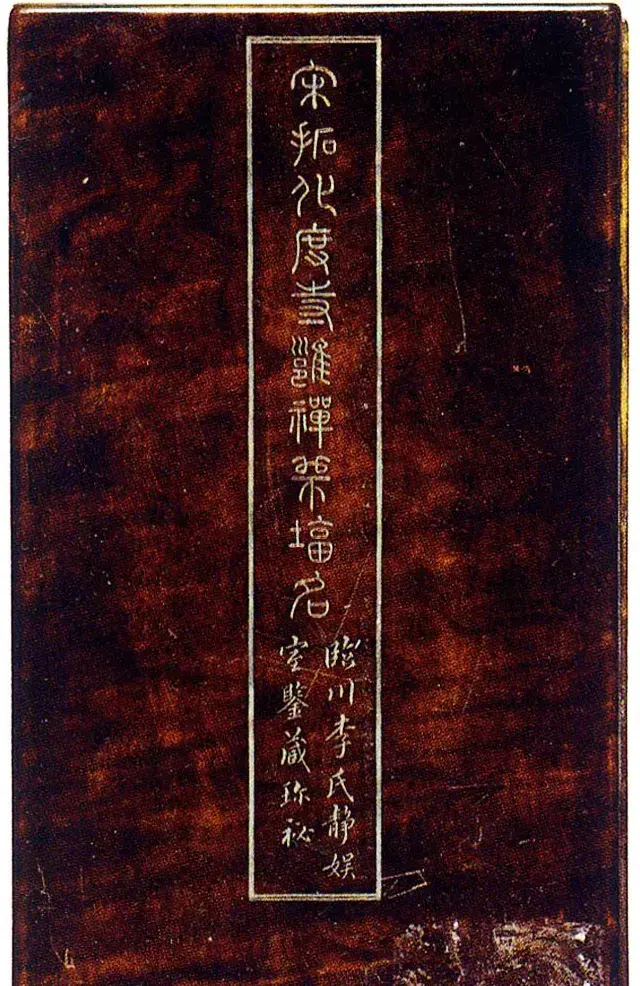 宋拓化度寺邕禪師塔名
臨川李氏靜娛
室鑒藏珍祕